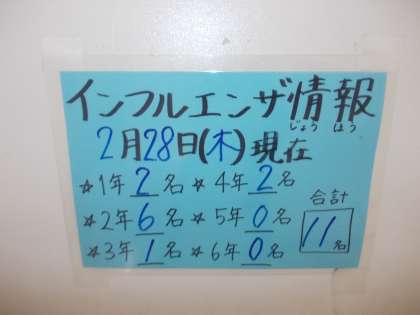 インフルエンザ情報
じょうほう
2月28日(木)現在
☆1年2名☆4年2名
☆2年6名☆5年0名
☆3年1名☆6年0名
合計
11名